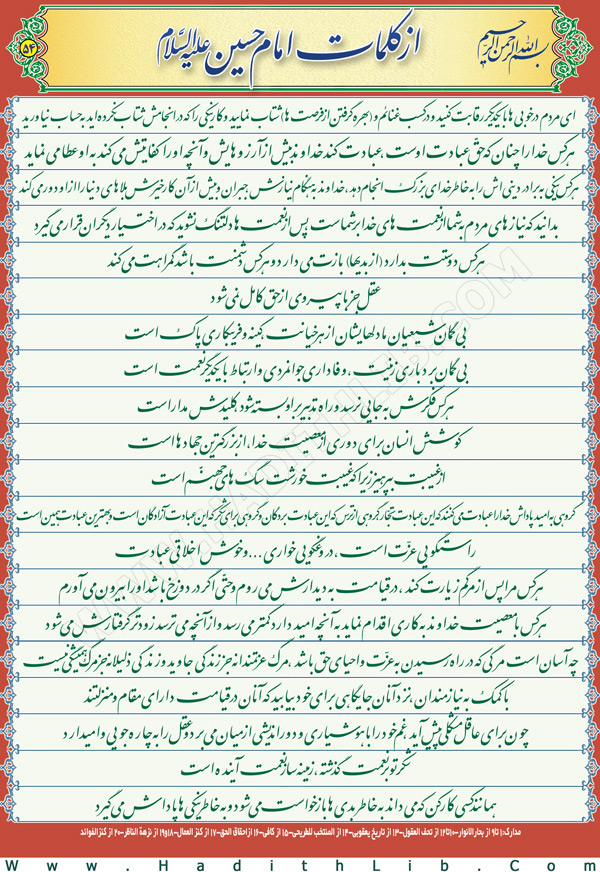 بسم الله الرحمن الرحیم
از کلمات امام حسین علیه السلام
۵۴
ای مردم در خوبی ها با یکدیگر رقابت کنید و در کسب غنائم و (بهره گرفتن از فرصت ها) شتاب نمایید و کار نیکی را که در انجامش شتاب نکرده اید به حساب نیاورید
هر کس خدا را چنان که حقّ عبادت اوست ، عبادت کند خداوند بیش از آرزوهایش و آنچه او را کفایتش می کند به او عطا می نماید
هر کس نیکی به برادر دینی اش را به خاطر خدای بزرگ انجام دهد ، خداوند به هنگام نیازش جبران و بیش از آن کار خیرش بلاهای دنیا را از او دور می کند
بدانید که نیازهای مردم به شما از نعمت های خدا بر شماست پس از نعمت ها دلتنگ نشوید که در اختیار دیگران قرار می گیرد
هر کس دوستت بدارد (از بدیها) بازت می دارد و هر کس دشمنت باشد گمراهت می کند
عقل جز با پیروی از حق کامل نمی شود
بی گمان شیعیان ما دلهایشان از هر خیانت ، کینه و فریبکاری پاک است
بی گمان بردباری زینت ، وفاداری جوانمردی و ارتباط با یکدیگر نعمت است
هر کس فکرش به جایی نرسد و راه تدبیر بر او بسته شود کلیدش مداراست
کوشش انسان برای دوری از معصیت خدا ، از بزرگترین جهادها است
از غیبت بپرهیز زیرا که غیبت خورشت سگ های جهنّم است
گروهی به امید پاداش خدا را عبادت می کنند که این عبادت تجّار گروهی از ترس که این عبادت بردگان و گروهی برای شکر که این عبادت آزادگان است و بهترین عبادت همین است
راستگویی عزّت است ، دروغگویی خواری ... و خوش اخلاقی عبادت
هر کس مرا پس از مرگم زیارت کند ، در قیامت به دیدارش می روم و حتّی اگر در دوزخ باشد او را بیرون می آورم
هر کس با معصیت خداوند به کاری اقدام نماید به آنچه امید دارد کمتر می رسد و از آنچه می ترسد زودتر گرفتارش می شود
چه آسان است مرگی که در راه رسیدن به عزّت و احیای حق باشد ، مرگ عزتمندانه جز زندگی جاوید و زندگی ذلیلانه جز مرگ همیشگی نیست
با کمک به نیازمندان ، نزد آنان جایگاهی برای خود بیابید که آنان در قیامت دارای مقام و منزلتند
چون برای عاقل مشکلی پیش آید ، غم خود را با هوشیاری و دوراندیشی از میان می برد و عقل را به چاره جویی وامیدارد
شکر تو بر نعمت گذشته ، زمینه ساز نعمت آینده است
همانند کسی کار کن که می داند به خاطر بدی ها بازخواست می شود و به خاطر نیکی ها پاداش می گیرد
مدارک: ۱ تا ۹ از بحارالانوار-۱۰ تا ۱۲ از تحف العقول-۱۳ از تاریخ یعقوبی-۱۴ از المنتخب للطریحی-۱۵ از کافی-۱۶ از احقاق الحق-۱۷ از کنز العمال-۱۸ و ۱۹ از نزهة الناظر-۲۰ از کنز الفوائد
Www.HadithLib.Com
WWW.HADITHLIB.COM